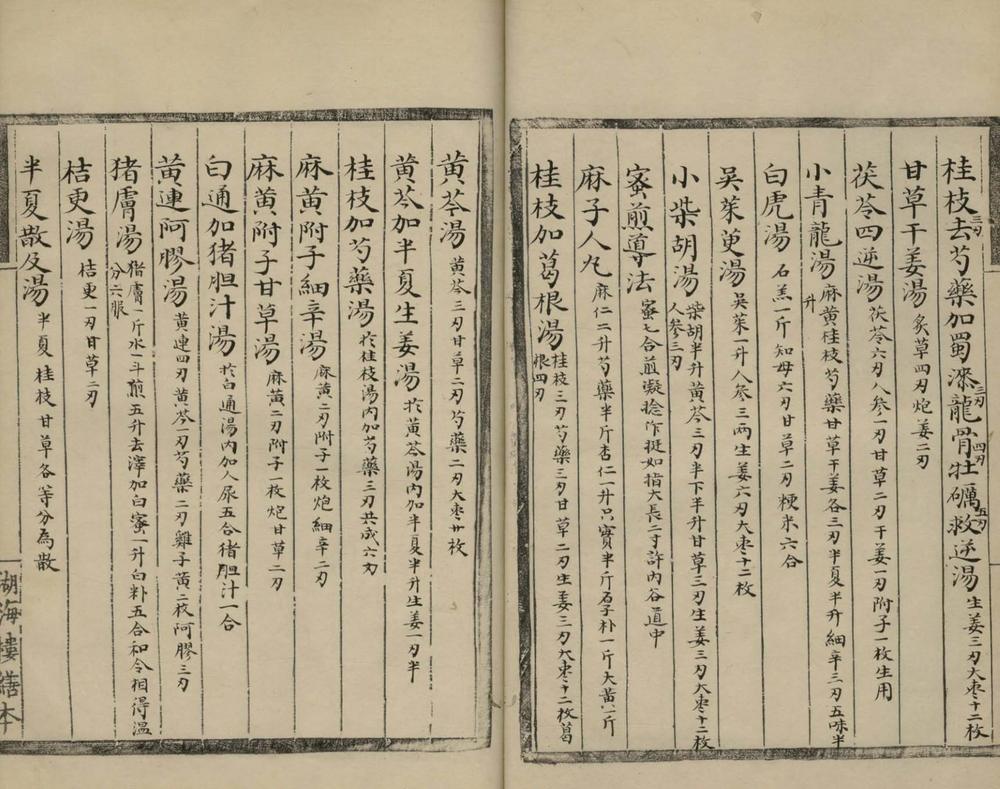 桂枝三刄去芍藥加蜀漆三刄龍骨四刄牡礪五刄救逆湯 生姜三刄大枣十二枚
甘草干姜湯 炙草四刄炮姜二刄
茯苓四逆湯 茯苓六刄人參一刄甘草二刄干姜一刄附子一枚生用
小青龍湯 麻黄桂枝芍藥甘草干姜各三刄半夏半升細辛三刄五味半升
白虎湯 石羔一斤知母六刄甘草二刄粳米六合
吳茱萸湯 吳茱一升人參三兩生姜六刄大枣十二枚
小柴胡湯 柴胡半升黄芩三刄半下半升甘草三刄生姜三刄大枣十二枚人參三刄
蜜煎導法 蜜七合煎凝捻作挺如指大長二寸許內谷道中
麻子人丸 麻仁二升芍藥半斤杏仁一升只實半斤石子朴一斤大黄一斤
桂枝加葛根湯 桂枝三刄芍藥三刄甘草二刄生姜三刄大枣十二枚葛根四刄
黄芩湯 黄芩三刄甘草二刄芍藥二刄大枣廿枚
黄芩加半夏生姜湯 扵黄芩湯內加半夏半升生姜一刄半
桂枝加芍藥湯 扵桂枝湯內加芍藥三刄共成六刄
麻黄附子細辛湯 麻黄二刄附子一枚炮細辛二刄
麻黄附子甘草湯 麻黄二刄附子一枚炮甘草二刄
白通加猪胆汁湯 扵白通湯內加人尿五合猪胆汁一合
黄連阿膠湯 黄連四刄黄芩一刄芍藥二刄雞子黄二枚阿膠三刄
猪膚湯 猪膚一斤水一斗煎五升去澤加白蜜一升白籵五合和令相得温分六服
桔更湯 桔更一刄甘草二刄
半夏散及湯 半夏桂枝甘草各等分為散
湖海樓繕本